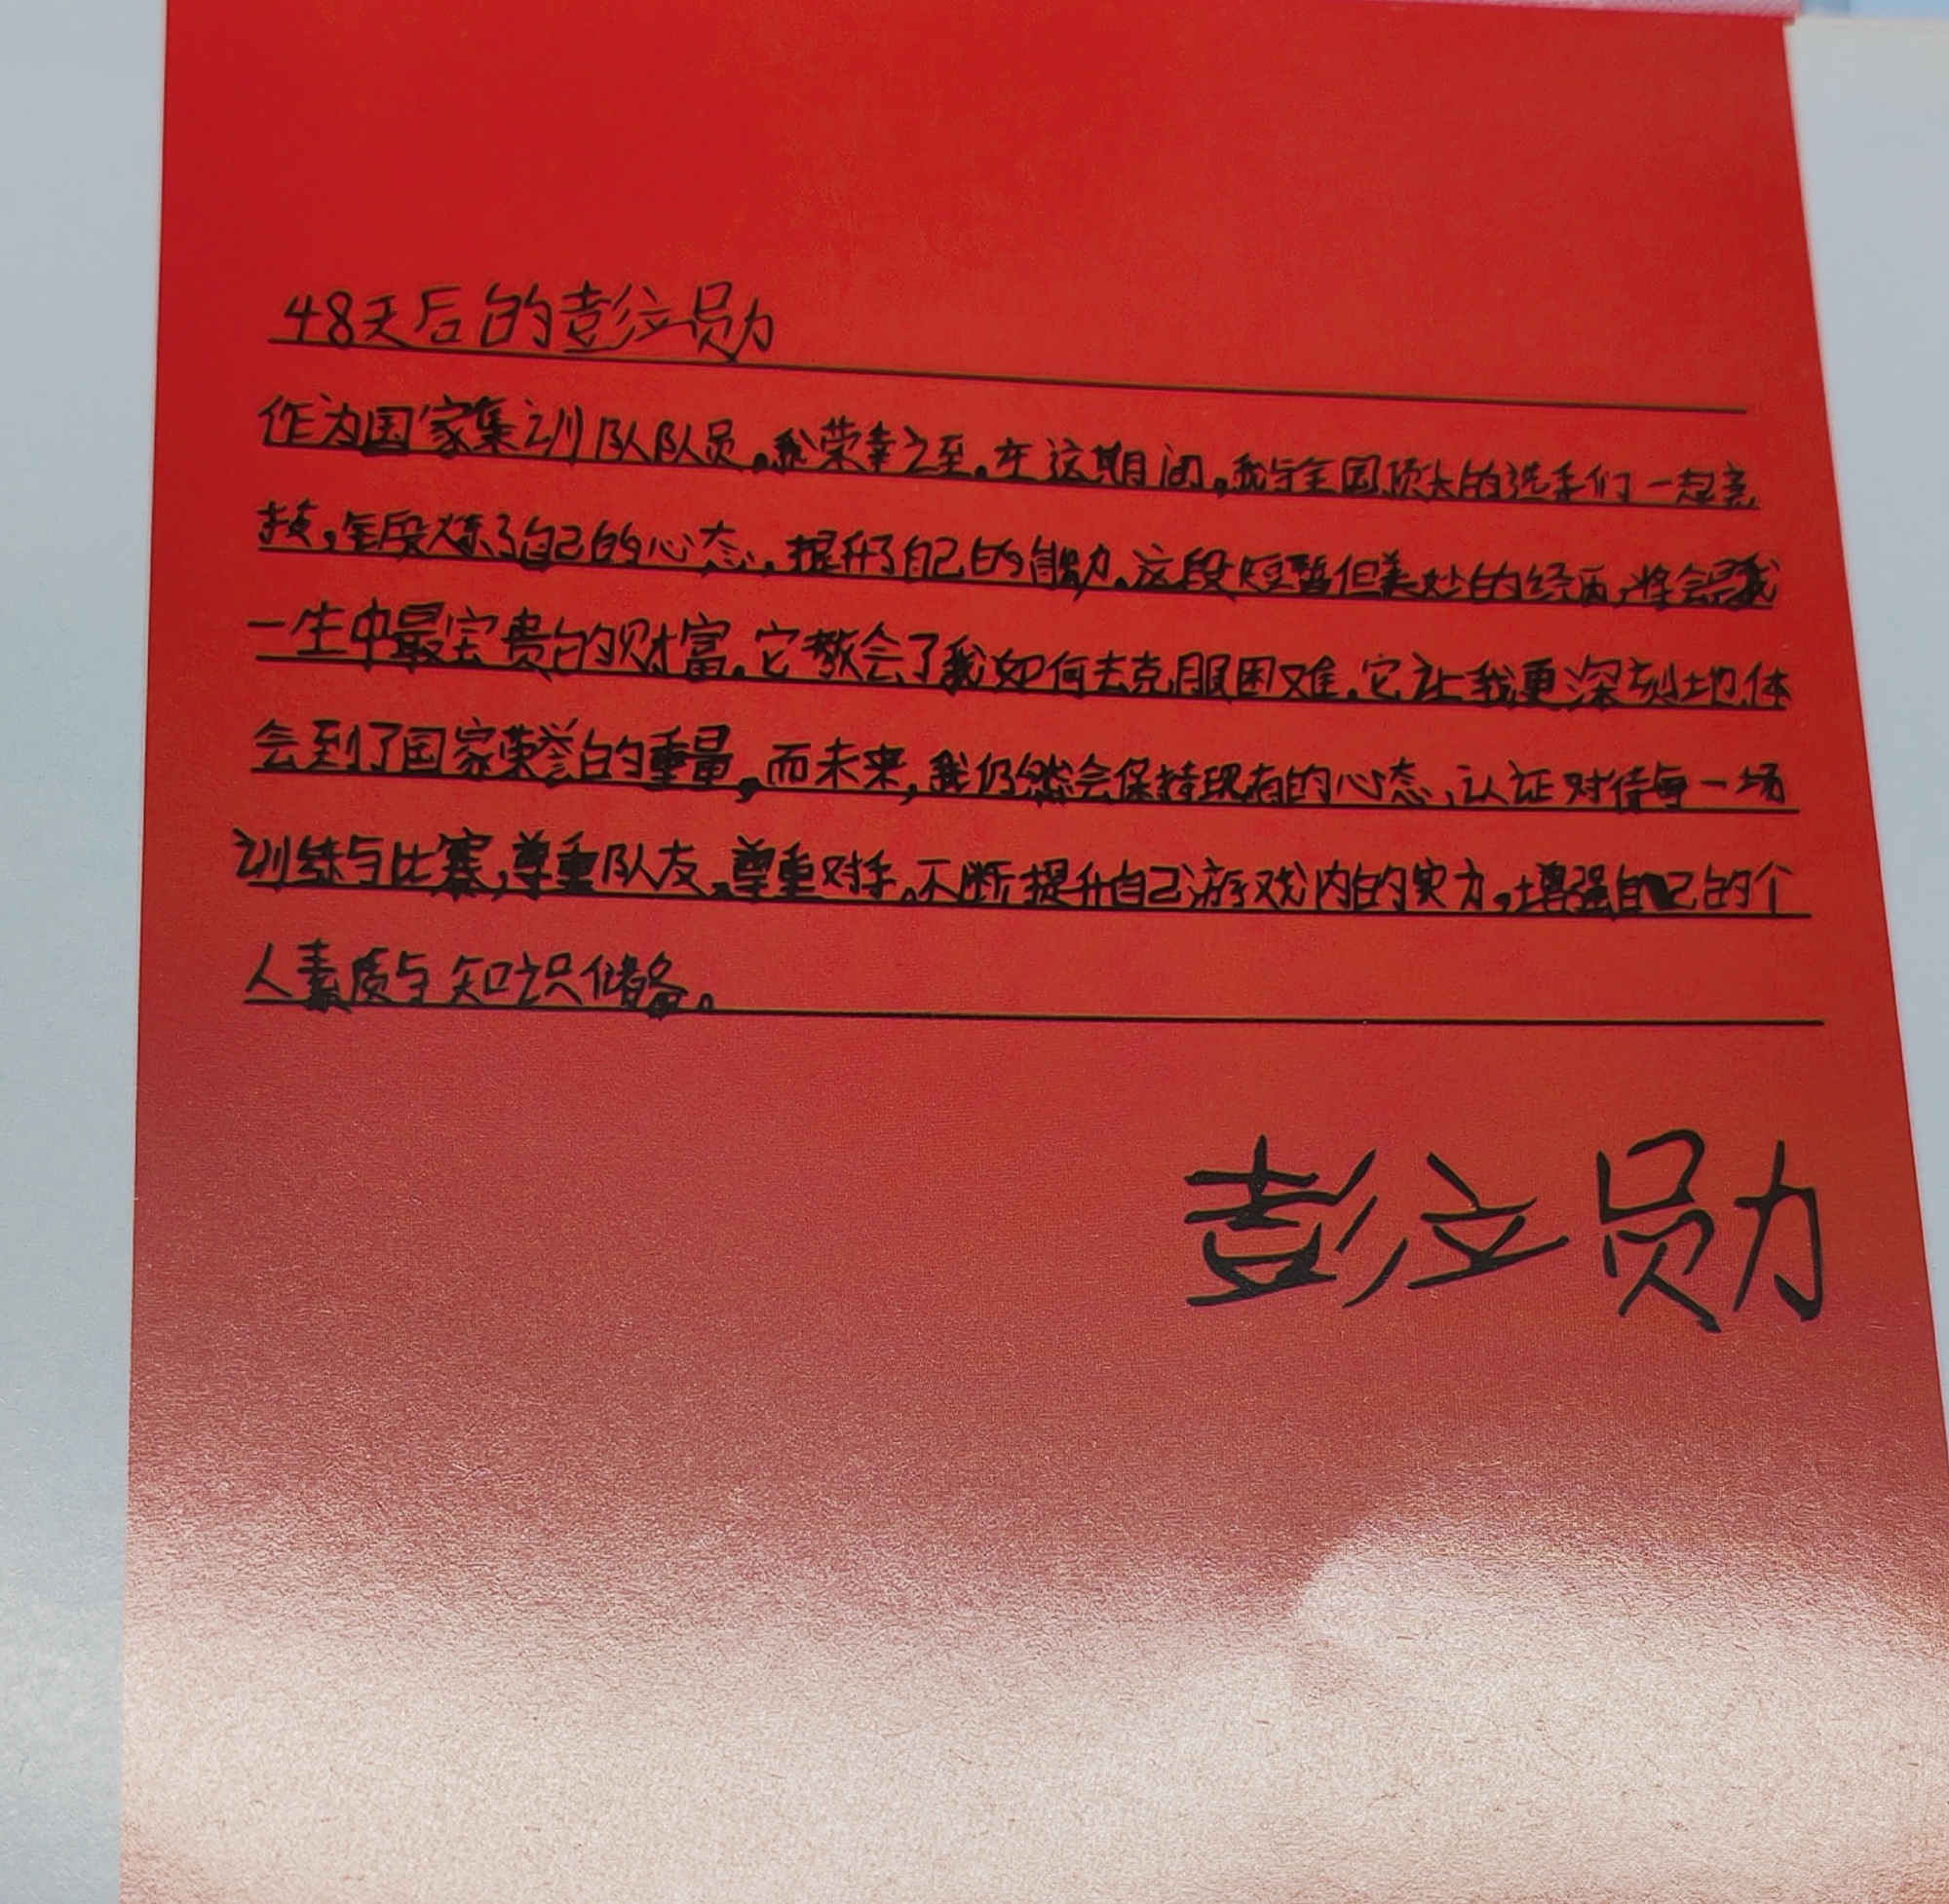 48天后的彭立勋
作为国家集训队队员,我荣幸之至。在这期间,我与全国顶尖的选手们一起竞
技,锻炼了自己的心态,提升了自己的能力。这段短暂但美妙的经历,将会是我
一生中最宝贵的财富。它教会了我如何去克服困难,它让我更深刻地体
会到了国家荣誉的重量。而未来,我仍然会保持现有的心态,认证对待每一场
训练与比赛,尊重队友,尊重对手。不断提升自己游戏内的实力,增强自己的个
人素质与知识储备。
彭立勋